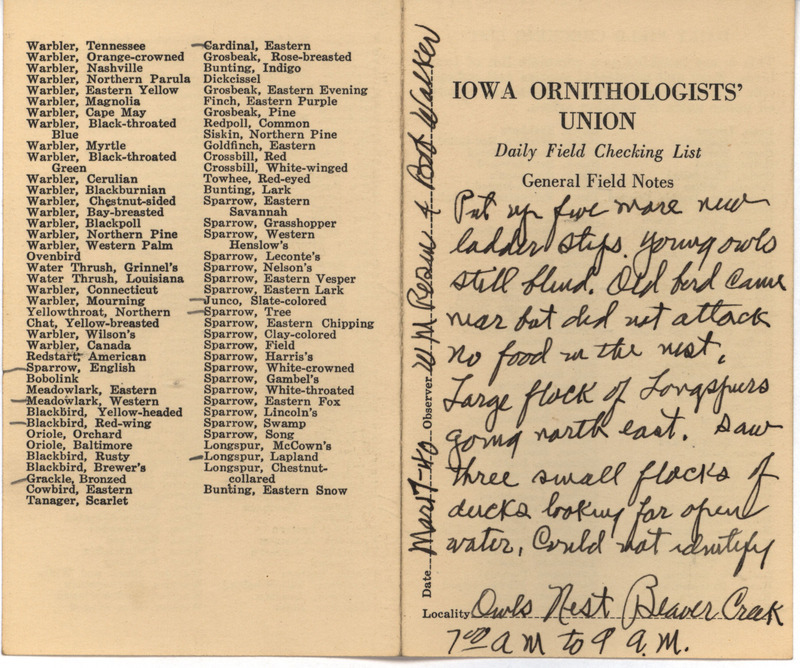 Warbler, Tennessee
Warbler, Orange-crowned
Warbler, Nashville
Warbler, Northern Parula
Warbler, Eastern Yellow
Warbler, Magnolia
Warbler, Cape May
Warbler, Black-throated
Blue
Warbler, Myrtle
Warbler, Black-throated
Green
Warbler, Cerulian
Warbler, Blackburnian
Warbler, Chestnut-sided
Warbler, Bay-breasted
Warbler, Blackpoll
Warbler, Northern Pine
Warbler, Western Palm
Ovenbird
Water Thrush, Grinnel's
Water Thrush, Louisiana
Warbler, Connecticut
Warbler, Mourning
Yellowthroat, Northern
Chat, Yellow-breasted
Warbler, Wilson's
Warbler, Canada
Redstart, American
Sparrow, English
Bobolink
Meadowlark, Eastern
Meadowlark, Western
Blackbird, Yellow-headed
Blackbird, Red-wing
Oriole, Orchard
Oriole, Baltimore
Blackbird, Rusty
Blackbird, Brewer's
Grackle, Bronzed
Cowbird, Eastern
Tanager, Scarlet
Cardinal, Eastern
Grosbeak, Rose-breasted
Bunting, Indigo
Dickcissel
Grosbeak, Eastern Evening
Finch, Eastern Purple
Grosbeak, Pine
Redpoll, Common
Siskin, Northern Pine
Goldfinch, Eastern
Crossbill, Red
Crossbill, White-winged
Towhee, Red-eyed
Bunting, Lark
Sparrow, Eastern
Savannah
Sparrow, Grasshopper
Sparrow, Western
Henslow's
Sparrow, Leconte's
Sparrow, Nelson's
Sparrow, Eastern Vesper
Sparrow, Eastern Lark
Junco, Slate-colored
Sparrow, Tree
Sparrow, Eastern Chipping
Sparrow, Clay-colored
Sparrow, Field
Sparrow, Harris's
Sparrow, White-crowned
Sparrow, Gambel's
Sparrow, White-throated
Sparrow, Eastern Fox
Sparrow, Lincoln's
Sparrow, Swamp
Sparrow, Song
Longspur, McCown's
Longspur, Lapland
Longspur, Chestnut-
collared
Bunting, Eastern Snow
Date Mar 7-40 Observer W M Rosen & Bob Walker
IOWA ORNITHOLOGISTS'
UNION
Daily Field Checking List
General Field Notes
Put up five more new
ladder steps. Young owls
still blind. Old bird came
near but did not attack
No food in the nest.
Large flock of Longspurs
going north east. Saw
three small flocks of
ducks looking for open
water, Could not identify
Locality Owls Nest Beaver Creek
7:00 A M to 9 A.M.